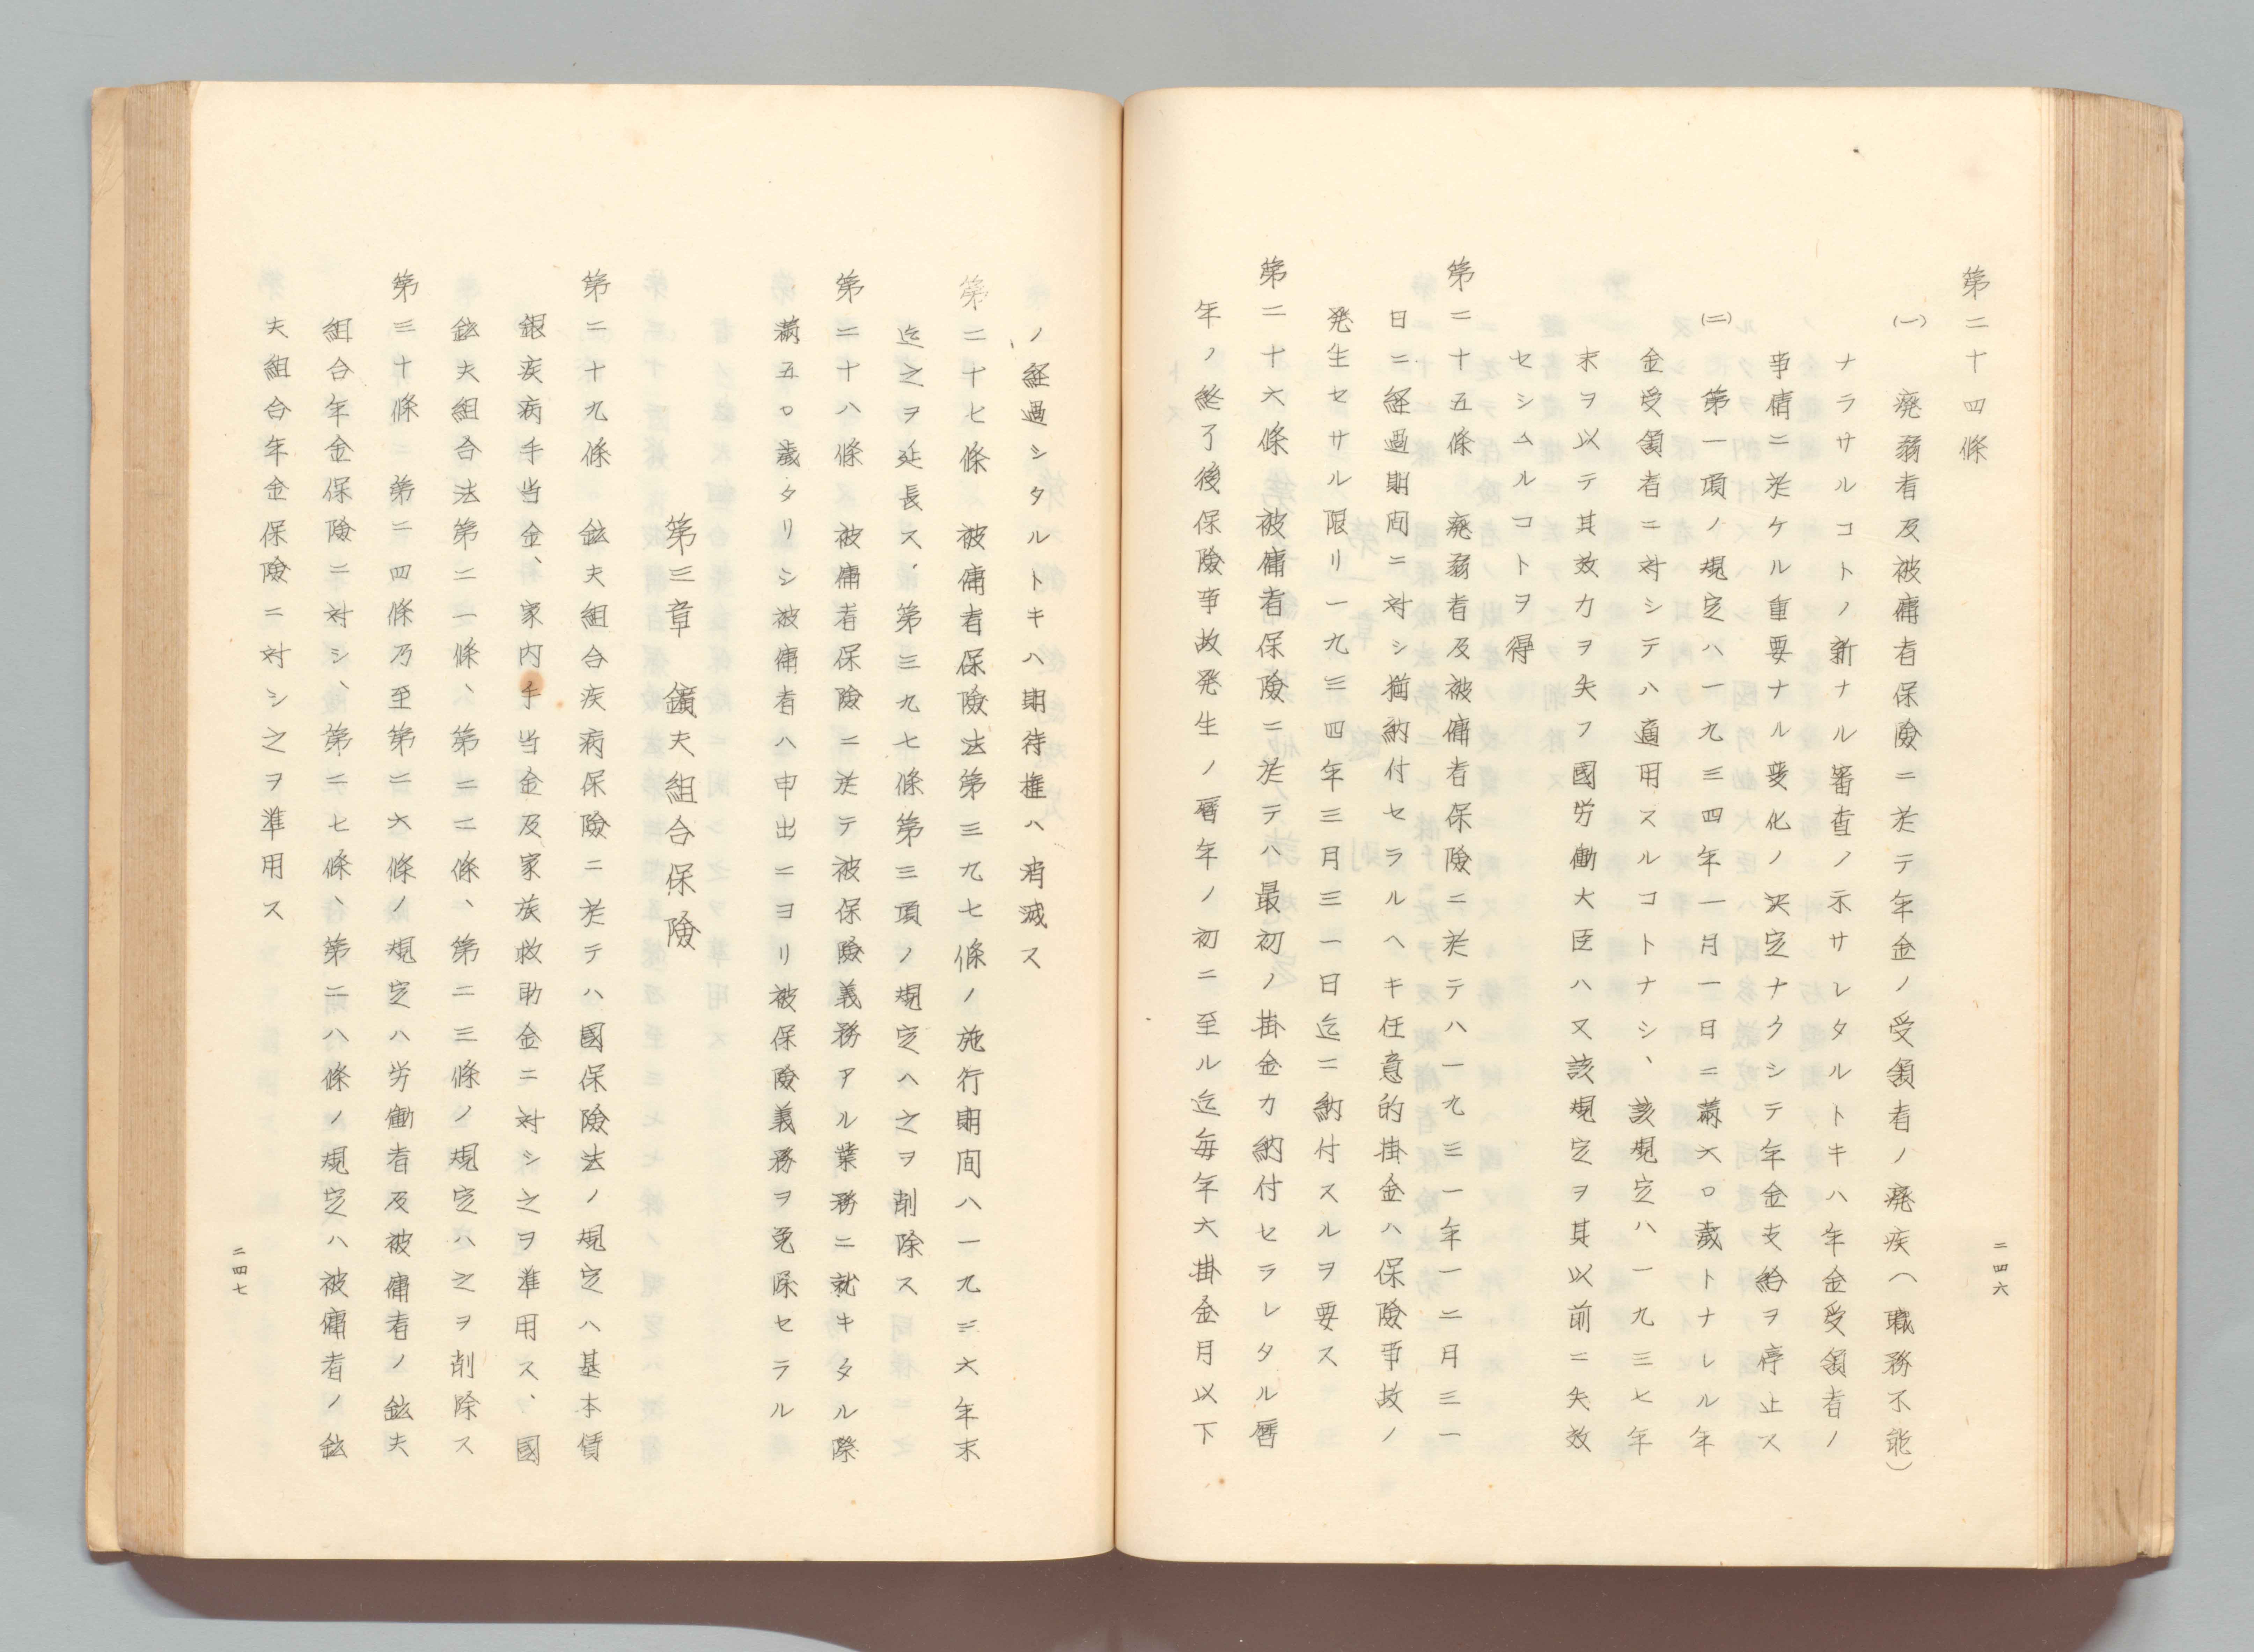 二四六
第二十四條
(一) 廃弱者及被傭者保險ニ於テ年金ノ受領者ノ廃疾(職務不能)
ナラサルコトノ新ナル審査ノ示サレタルトキハ年金受領者ノ
事情ニ於ケル重要ナル変化ノ決定ナクシテ年金支給ヲ停止ス
(二) 第一項ノ規定ハ一九三四年一月一日ニ満六〇歳トナレル年
金受領者ニ対シテハ適用スルコトナシ、該規定ハ一九三七年
末ヲ以テ其効力ヲ失フ國労働大臣ハ又該規定ヲ其以前ニ失効
セシムルコトヲ得
第二十五條 廃弱者及被傭者保險ニ於テハ一九三一年一二月三一
日ニ経過期間ニ対シ猶納付セラルヘキ任意的掛金ハ保險事故ノ
発生セサル限リ一九三四年三月三一日迄ニ納付スルヲ要ス
第二十六條 被傭者保險ニ於テハ最初ノ掛金カ納付セラレタル暦
年ノ終了後保險事故発生ノ暦年ノ初ニ至ル迄毎年六掛金月以下
ノ経過シタルトキハ期待権ハ消滅ス
第二十七條 被傭者保險法第三九七條ノ施行期間ハ一九三六年末
迄之ヲ延長ス、第三九七條第三項ノ規定ハ之ヲ削除ス
第二十八條 被傭者保險ニ於テ被保險義務アル業務ニ就キタル際
満五〇歳タリシ被傭者ハ申出ニヨリ被保險義務ヲ免除セラル
第三章 鑛夫組合保險
第二十九條 鉱夫組合疾病保險ニ於テハ國保險法ノ規定ハ基本賃
銀疾病手当金、家内手当金及家族救助金ニ対シ之ヲ準用ス、國
鉱夫組合法第二一條、第二二條、第二三條ノ規定ハ之ヲ削除ス
第三十條 第二四條乃至第二六條ノ規定ハ労働者及被傭者ノ鉱夫
組合年金保險ニ対シ、第二七條、第二八條ノ規定ハ被傭者ノ鉱
夫組合年金保險ニ対シ之ヲ準用ス
二四七